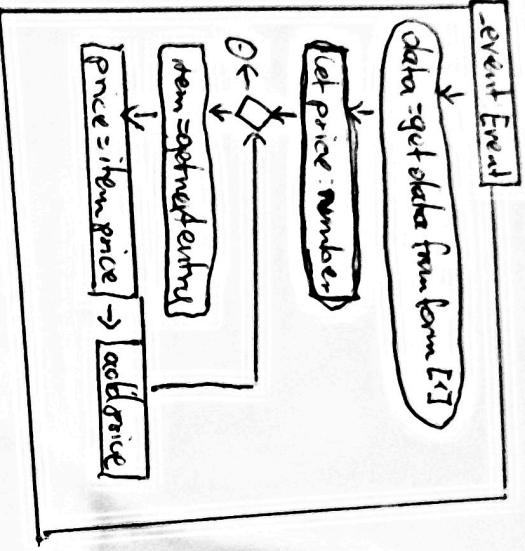 event Event
data = get data from form [<]
let price : number
item = getnextentry
price = item price
add price